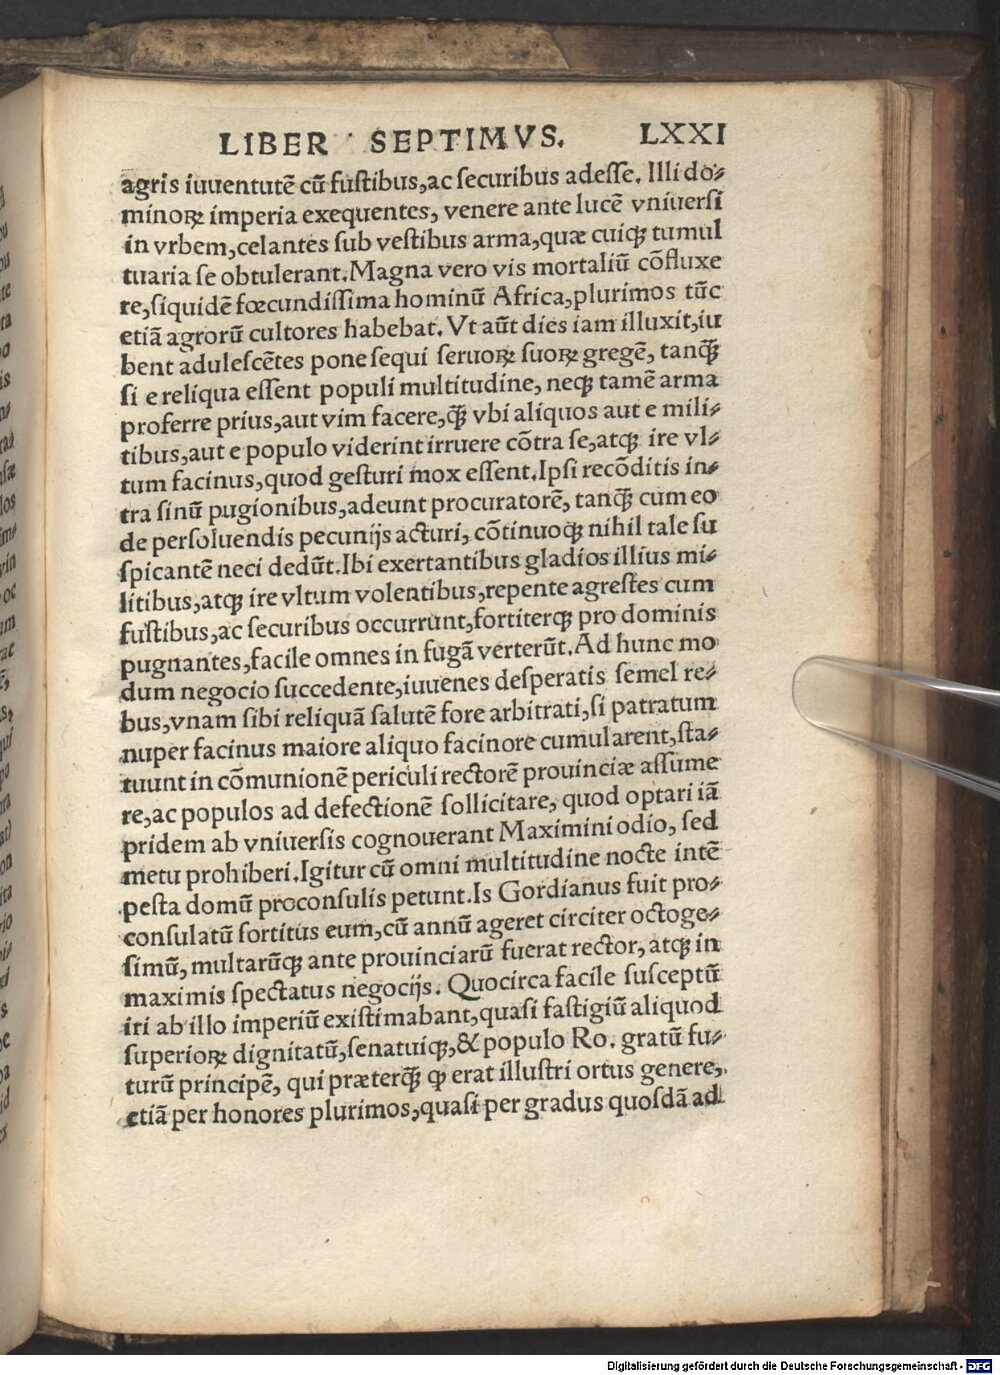 LIBER SEPTIMVS. LXXI
agris iuuentutē cū fuſtibus,ac ſecuribus adeſſe. Illi do⸗
minoꝝ imperia exequentes, venere ante lucē vniuerſi
in vrbem,celantes ſub veſtibus arma,quæ cuiqꝫ tumul
tuaria ſe obtulerant.Magna vero vis mortaliū cōfluxe
re,ſiquidē fœcundiſſima hominū Africa,plurimos tūc
etiā agrorū cultores habebat. Vt aūt dies iam illuxit,iu
bent aduleſcētes pone ſequi ſeruoꝝ ſuoꝝ gregē, tanqꝫ̄
ſi e reliqua eſſent populi multitudine, neqꝫ tamē arma
proferre prius,aut vim facere,qꝫ̄ vbi aliquos aut e mili⸗
tibus,aut e populo viderint irruere cōtra ſe,atqꝫ ire vl⸗
tum facinus,quod geſturi mox eſſent.Ipſi recōditis in⸗
tra ſinū pugionibus,adeunt procuratorē, tanqꝫ̄ cum eo
de perſoluendis pecunijs acturi, cōtinuoqꝫ nihil tale ſu
ſpicantē neci dedūt.Ibi exertantibus gladios illius mi⸗
litibus,atqꝫ ire vltum volentibus,repente agreſtes cum
fuſtibus,ac ſecuribus occurrunt,fortiterqꝫ pro dominis
pugnantes,facile omnes in fugā verterūt.Ad hunc mo
dum negocio ſuccedente,iuuenes deſperatis ſemel re⸗
bus,vnam ſibi reliquā ſalutē fore arbitrati,ſi patratum
nuper facinus maiore aliquo facinore cumularent,ſta⸗
tuunt in cōmunionē periculi rectorē prouinciæ aſſume
re,ac populos ad defectionē ſollicitare, quod optari iā
pridem ab vniuerſis cognouerant Maximini odio, ſed
metu prohiberi.Igitur cū omni multitudine nocte intē
peſta domū proconſulis petunt.Is Gordianus fuit pro⸗
conſulatū ſortitus eum,cū annū ageret circiter octoge⸗
ſimū, multarūqꝫ ante prouinciarū fuerat rector, atqꝫ in
maximis ſpectatus negocijs. Quocirca facile ſuſceptū
iri ab illo imperiū exiſtimabant,quaſi faſtigiū aliquod
ſuperioꝝ dignitatū,ſenatuiqꝫ,& populo Ro. gratū fu⸗
turū principē, qui præterqꝫ̄ ꝙ erat illuſtri ortus genere,
etiā per honores plurimos,quaſi per gradus quoſdā ad
Digitalisierung gefördert durch die Deutsche Forschungsgemeinschaft - DFG